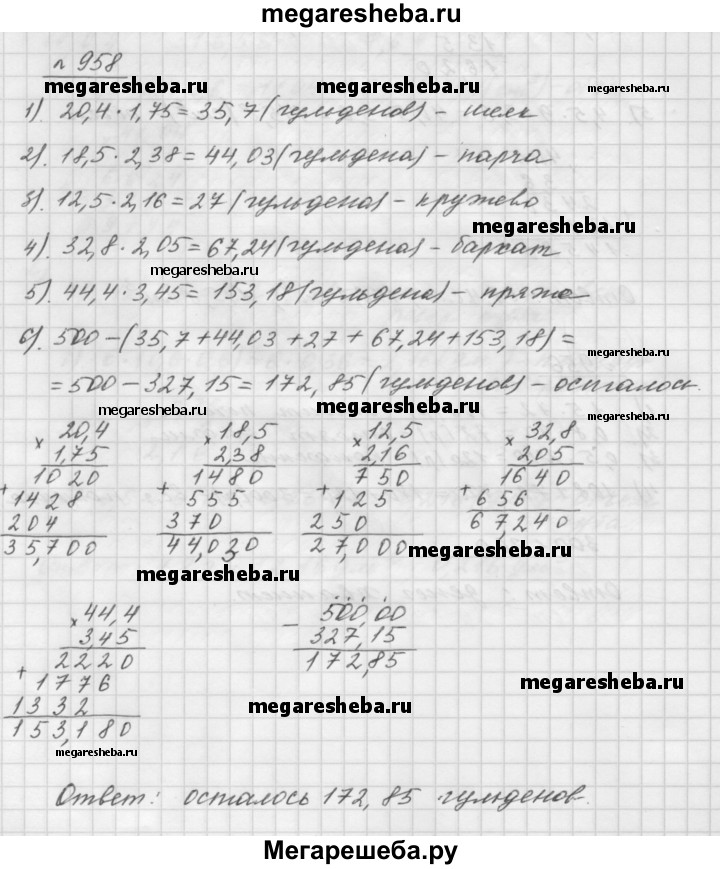 megaresheba.ru
n 958
megaresheba.ru megaresheba.ru megaresheba.ru
1). 20,4 · 1,75 = 35,7 (гульденов) - шелк
2). 18,5 · 2,38 = 44,03 (гульдена) - парча
3). 12,5 · 2,16 = 27 (гульдена) - кружево
megaresheba.ru
4). 32,8 · 2,05 = 67,24 (гульдена) - бархат
megaresheba.ru megaresheba.ru
5). 44,4 · 3,45 = 153,18 (гульдена) - пряжа
6). 500 - (35,7 + 44,03 + 27 + 67,24 + 153,18) =
megaresheba.ru megaresheba.ru megaresheba.ru
= 500 - 327,15 = 172,85 (гульденов) - осталось.
megaresheba.ru megaresheba.ru megaresheba.ru
× 20,4 × 18,5 × 12,5 × 32,8
1,75 2,38 2,16 2,05
1020 1480 750 1640
+ 1428 + 555 + 125 + 656
204 370 250 67,240
35,700 44,030 27,000
megaresheba.ru
megaresheba.ru megaresheba.ru
× 44,4 - 500,00
3,45 327,15
2220 172,85
+ 1776
1332
153,180
megaresheba.ru
megaresheba.ru
megaresheba.ru
megaresheba.ru megaresheba.ru
Ответ: осталось 172,85 гульденов.
megaresheba.ru
Мегарешеба.ру